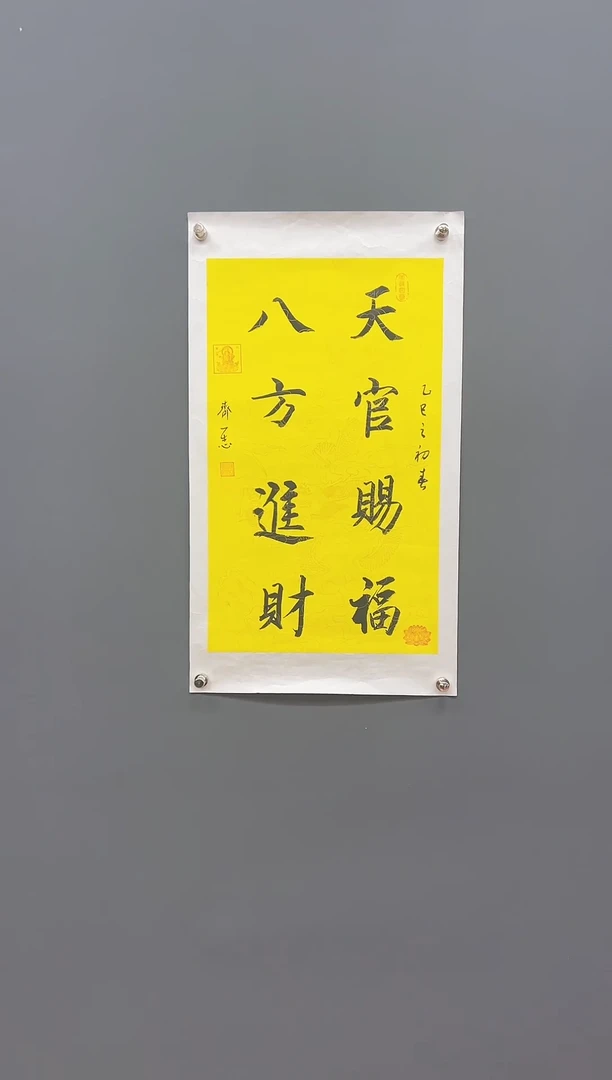 乙巳之初春
天官賜福
八方進財
齊一志